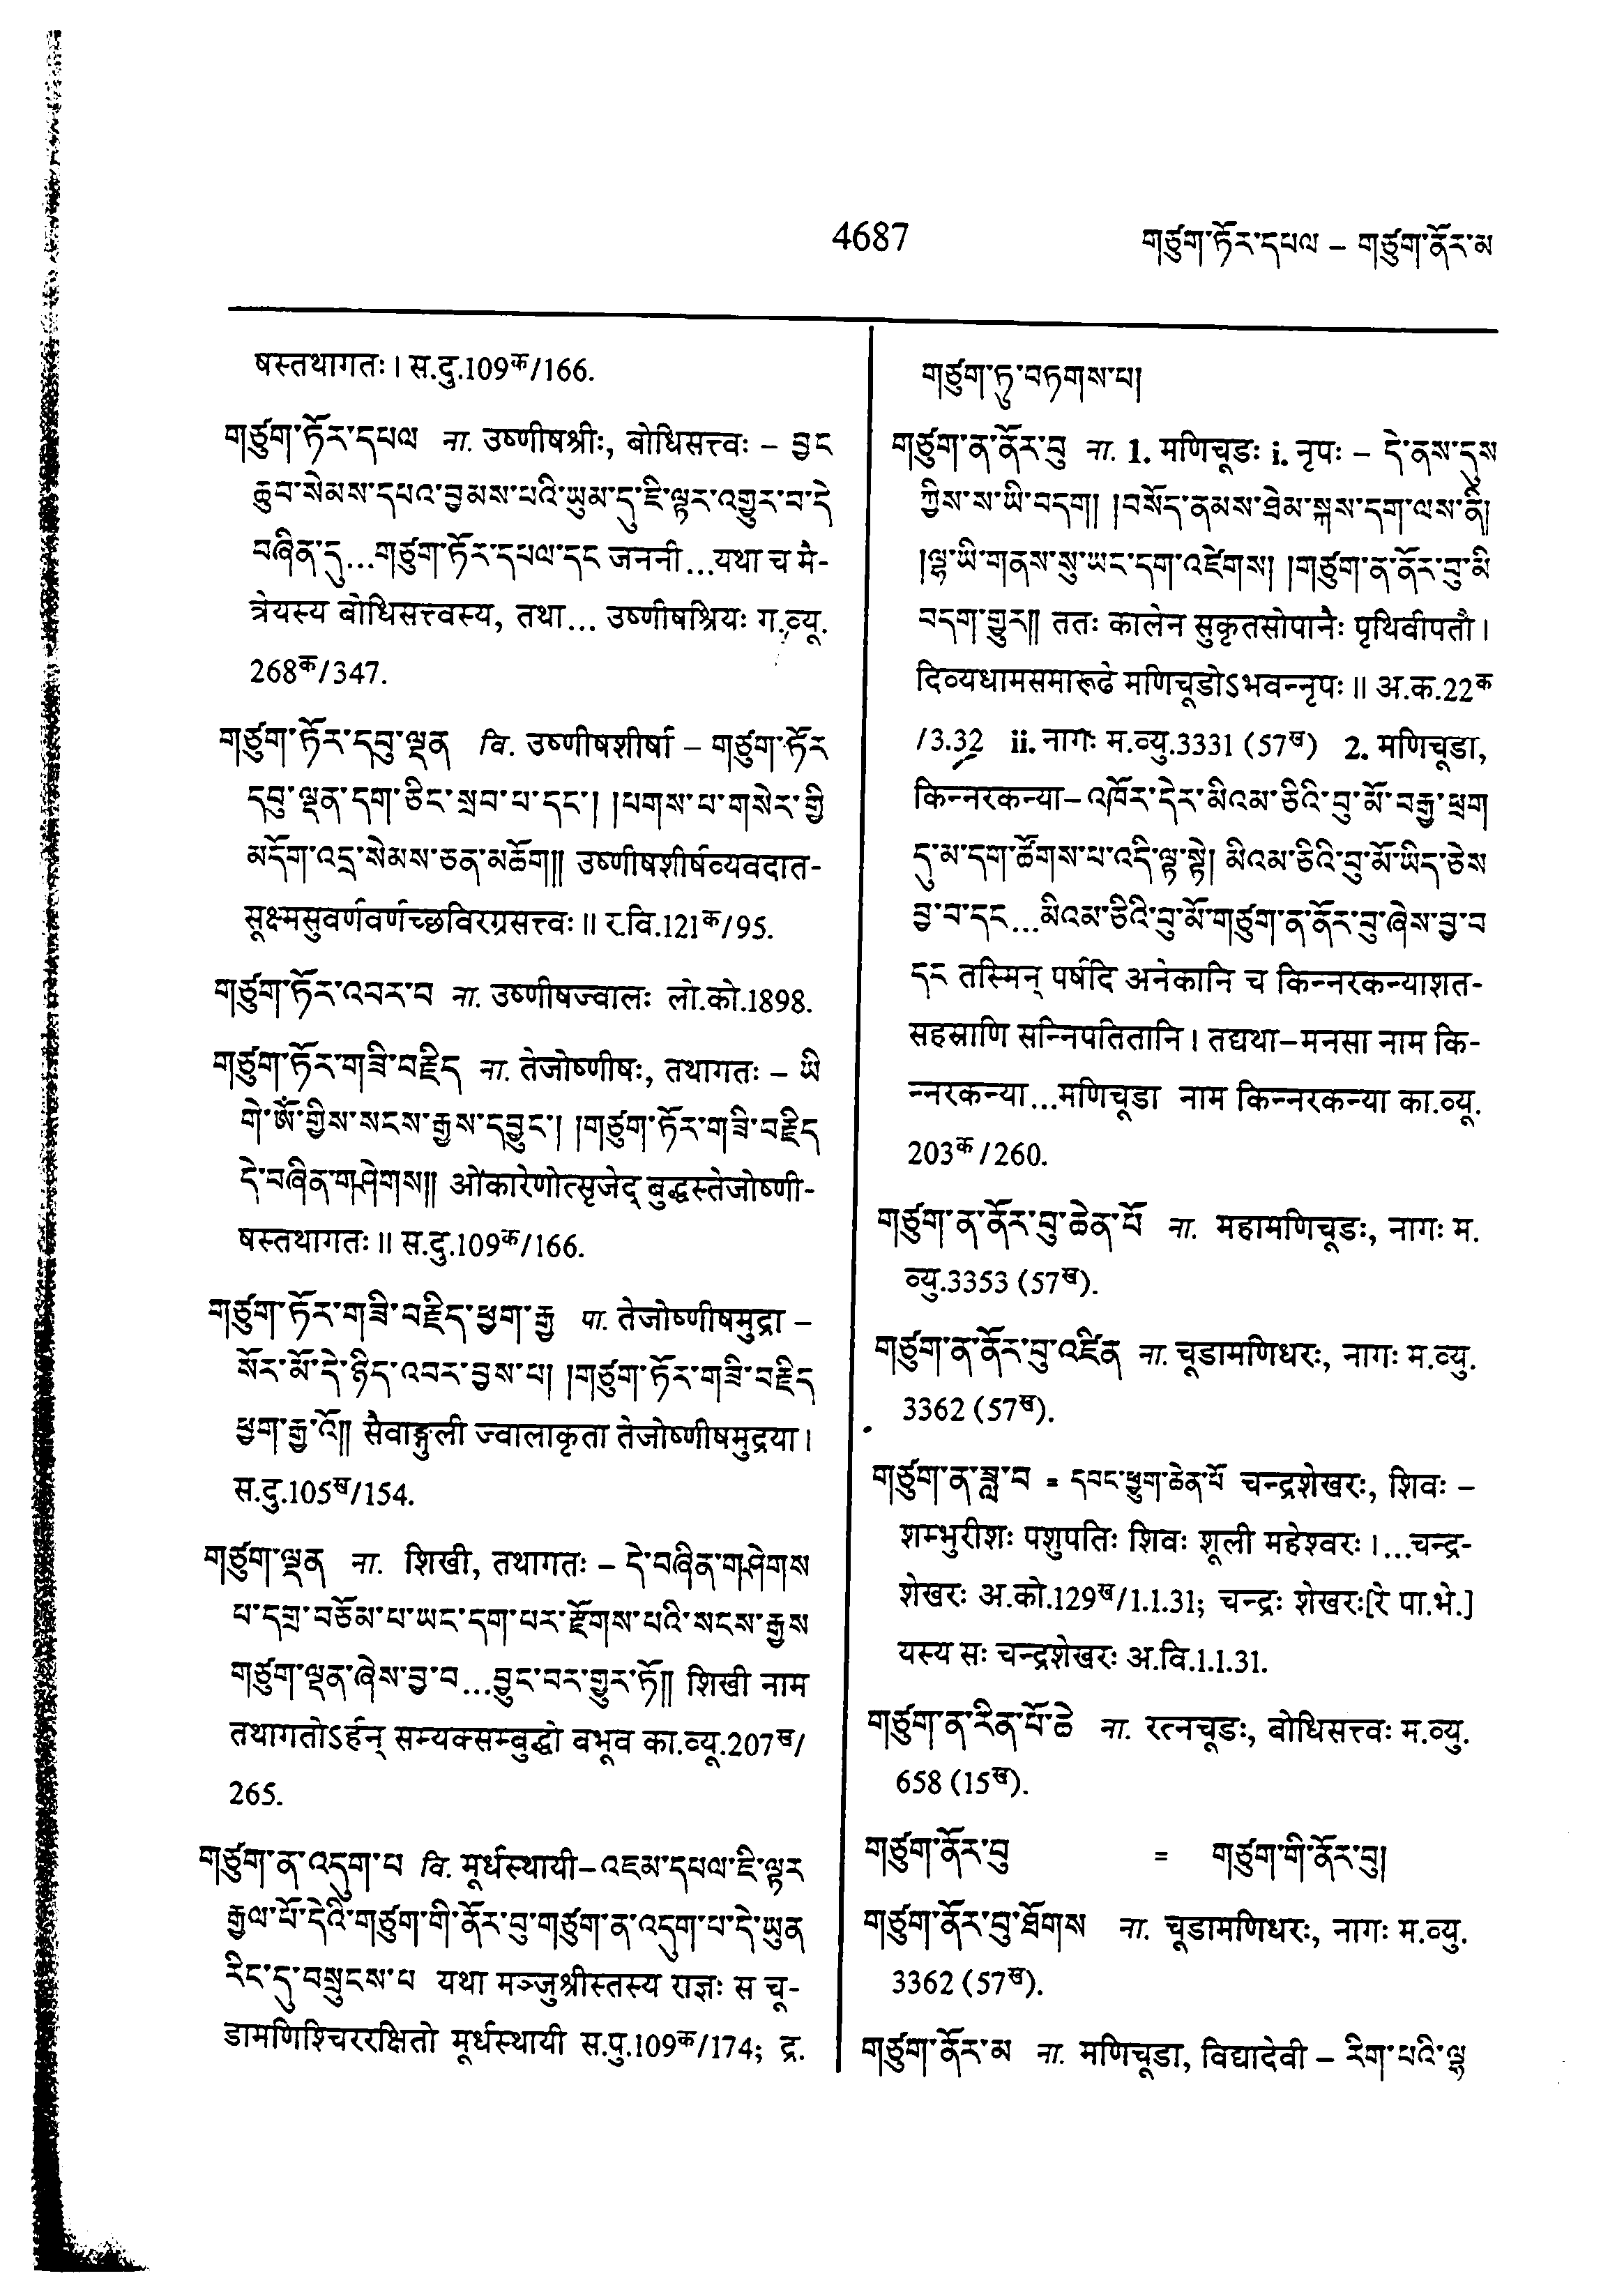 4687
གཙུག་ཏོར་དཔལ – གཙུག་ནོར་མ
षस्तथागतः । स.दु.109क/166.
གཙུག་ཏོར་དཔལ ना. उष्णीषश्रीः, बोधिसत्त्वः – བྱང
ཆུབ་སེམས་དཔའ་བྱམས་པའི་ཡུམ་དུ་ཇི་ལྟར་འགྱུར་བ་དེ
བཞིན་དུ...གཙུག་ཏོར་དཔལ་དང जननी...यथा च मै-
त्रेयस्य बोधिसत्त्वस्य, तथा... उष्णीषश्रियः ग.व्यू.
268क/347.
གཙུག་ཏོར་དབུ་ལྡན वि. उष्णीषशीर्षा – གཙུག་ཏོར
དབུ་ལྡན་དག་ཅིང་སྲབ་པ་དང་། །པགས་པ་གསེར་གྱི
མདོག་འདྲ་སེམས་ཅན་མཆོག།། उष्णीषशीर्षव्यवदात-
सूक्ष्मसुवर्णवर्णच्छविरग्रसत्त्वः ॥ र.वि.121क/95.
གཙུག་ཏོར་འབར་བ ना. उष्णीषज्वालः लो.को.1898.
གཙུག་ཏོར་གཟི་བརྗིད ना. तेजोष्णीषः, तथागतः – ཡི
གེ་ཨོཾ་གྱིས་སངས་རྒྱས་དབྱུང་། །གཙུག་ཏོར་གཟི་བརྗིད
དེ་བཞིན་གཤེགས།། ओंकारेणोत्सृजेद् बुद्धस्तेजोष्णी-
षस्तथागतः ॥ स.दु.109क/166.
གཙུག་ཏོར་གཟི་བརྗིད་ཕྱག་རྒྱ पा. तेजोष्णीषमुद्रा –
སོར་མོ་དེ་ཉིད་འབར་བྱས་པ། །གཙུག་ཏོར་གཟི་བརྗིད
ཕྱག་རྒྱ་འོ།། सैवाङ्गुली ज्वालाकृता तेजोष्णीषमुद्रया ।
स.दु.105ख/154.
གཙུག་ལྡན ना. शिखी, तथागतः – དེ་བཞིན་གཤེགས
པ་དགྲ་བཅོམ་པ་ཡང་དག་པར་རྫོགས་པའི་སངས་རྒྱས
གཙུག་ལྡན་ཞེས་བྱ་བ...བྱུང་བར་གྱུར་ཏོ།། शिखी नाम
तथागतोऽर्हन् सम्यक्सम्बुद्धो बभूव का.व्यू.207ख/
265.
གཙུག་ན་འདུག་པ वि. मूर्धस्थायी–འཇམ་དཔལ་ཇི་ལྟར
རྒྱལ་པོ་དེའི་གཙུག་གི་ནོར་བུ་གཙུག་ན་འདུག་པ་དེ་ཡུན
རིང་དུ་བསྲུངས་པ यथा मञ्जुश्रीस्तस्य राज्ञः स चू-
डामणिश्चिररक्षितो मूर्धस्थायी स.पु.109क/174; द्र.
གཙུག་ཏུ་བཏགས་པ།
གཙུག་ན་ནོར་བུ ना. 1. मणिचूडः i. नृपः – དེ་ནས་དུས
ཀྱིས་ས་ཡི་བདག། །བསོད་ནམས་ཐེམ་སྐས་དག་ལས་ནི།
།ལྷ་ཡི་གནས་སུ་ཡང་དག་འཛེགས། །གཙུག་ན་ནོར་བུ་མི
བདག་གྱུར།། ततः कालेन सुकृतसोपानैः पृथिवीपतौ ।
दिव्यधामसमारूढे मणिचूडोऽभवन्नृपः ॥ अ.क.22क
/3.32 ii. नागः म.व्यु.3331 (57ख) 2. मणिचूडा,
किन्नरकन्या–འཁོར་དེར་མིའམ་ཅིའི་བུ་མོ་བརྒྱ་ཕྲག
དུ་མ་དག་ཚོགས་པ་འདི་ལྟ་སྟེ། མིའམ་ཅིའི་བུ་མོ་ཡིད་ཅེས
བྱ་བ་དང...མིའམ་ཅིའི་བུ་མོ་གཙུག་ན་ནོར་བུ་ཞེས་བྱ་བ
དང तस्मिन् पर्षदि अनेकानि च किन्नरकन्याशत-
सहस्राणि सन्निपतितानि । तद्यथा–मनसा नाम कि-
न्नरकन्या...मणिचूडा नाम किन्नरकन्या का.व्यू.
203क/260.
གཙུག་ན་ནོར་བུ་ཆེན་པོ ना. महामणिचूडः, नागः म.
व्यु.3353 (57ख).
གཙུག་ན་ནོར་བུ་འཛིན ना. चूडामणिधरः, नागः म.व्यु.
3362 (57ख).
གཙུག་ན་ཟླ་བ = དབང་ཕྱུག་ཆེན་པོ चन्द्रशेखरः, शिवः –
शम्भुरीशः पशुपतिः शिवः शूली महेश्वरः ।...चन्द्र-
शेखरः अ.को.129ख/1.1.31; चन्द्रः शेखरः[रे पा.भे.]
यस्य सः चन्द्रशेखरः अ.वि.1.1.31.
གཙུག་ན་རིན་པོ་ཆེ ना. रत्नचूडः, बोधिसत्त्वः म.व्यु.
658 (15ख).
གཙུག་ནོར་བུ = གཙུག་གི་ནོར་བུ།
གཙུག་ནོར་བུ་ཐོགས ना. चूडामणिधरः, नागः म.व्यु.
3362 (57ख).
གཙུག་ནོར་མ ना. मणिचूडा, विद्यादेवी – རིག་པའི་ལྷ